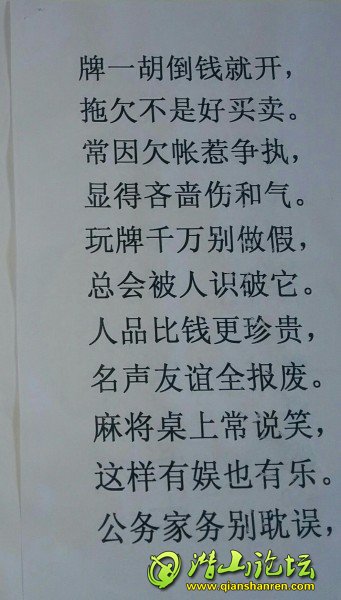 牌一胡倒钱就开，
拖欠不是好买卖。
常因欠帐惹争执，
显得吝啬伤和气。
玩牌千万别做假，
总会被人识破它。
人品比钱更珍贵，
名声友谊全报废。
麻将桌上常说笑，
这样有娱也有乐。
公务家务别耽误，
潜山论坛
www.qianshanren.com